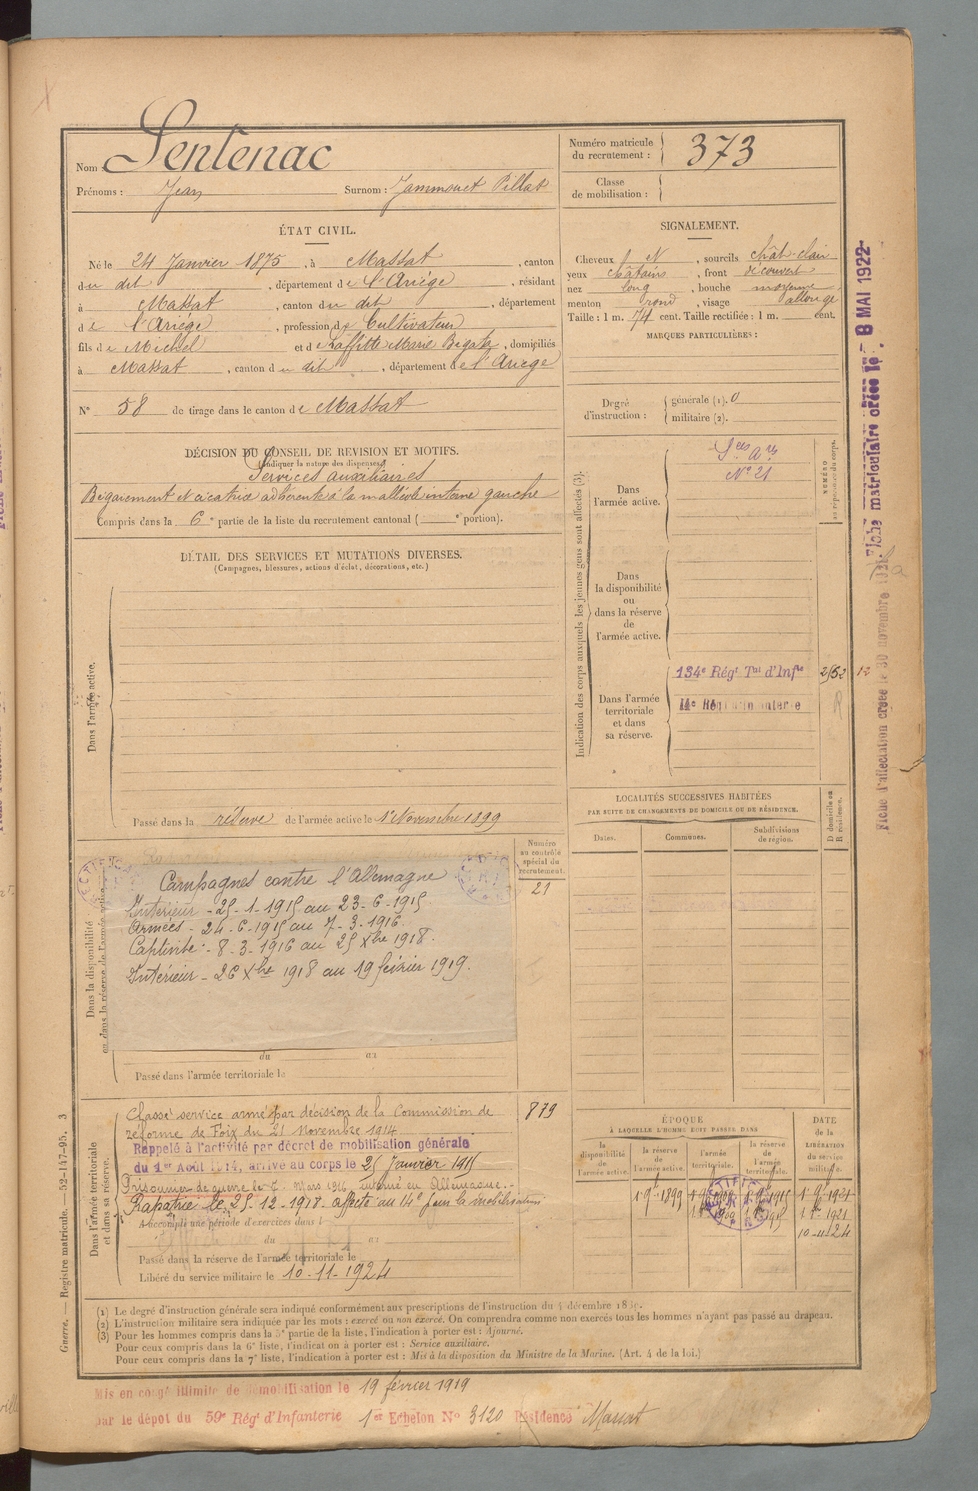 Nom Sentenac
Prénoms : Jean Surnom : Jammouet Pillat
Numéro matricule
du recrutement : 373
Classe
de mobilisation :
ÉTAT CIVIL.
Né le 24 Janvier 1875, à Massat, canton
du dit, département de l'Ariège, résidant
à Massat, canton du dit, département
de l'Ariège, profession de Cultivateur
fils de Michel et de Laffitte Marie Begate, domiciliés
à Massat, canton du dit, département de l'Ariège
N° 58 de tirage dans le canton de Massat
SIGNALEMENT.
Cheveux N, sourcils chât-clair
yeux châtains, front découvert
nez long, bouche moyenne
menton rond, visage allongé
Taille : 1 m. 74 cent. Taille rectifiée : 1 m. cent.
MARQUES PARTICULIÈRES :
Degré
d'instruction :
générale (1). 0
militaire (2).
DÉCISION DU CONSEIL DE REVISION ET MOTIFS.
(Indiquer la nature des dispenses)
Services auxiliaires
Bégaiement et cicatrice adhérente à la malléole interne gauche
Compris dans la 6e partie de la liste du recrutement cantonal ( e portion).
DÉTAIL DES SERVICES ET MUTATIONS DIVERSES.
(Campagnes, blessures, actions d'éclat, décorations, etc.)
Dans l'armée active.
Passé dans la réserve de l'armée active le 1er Novembre 1899
Indication des corps auxquels les jeunes gens sont affectés (3).
Dans
l'armée active.
Sces Ares
N° 21
NUMÉRO
au répertoire du corps.
Dans
la disponibilité
ou
dans la réserve
de
l'armée active.
Dans l'armée
territoriale
et dans
sa réserve.
134e Régt Tal d'Infie
2/52
12
R
LOCALITÉS SUCCESSIVES HABITÉES
PAR SUITE DE CHANGEMENTS DE DOMICILE OU DE RÉSIDENCE.
Dates.
Communes.
Subdivisions
de région.
D domicile ou
R résidence.
Numéro
au contrôle
spécial du
recrutement.
21
Dans la disponibilité
ou dans la réserve de l'armée active.
Campagnes contre l'Allemagne
Intérieur - 25-1-1915 au 23-6-1915.
Armées - 24-6-1915 au 7-3-1916
Captivité :- 8-3-1916 au 25 Xbre 1918.
Intérieur - 26 Xbre 1918 au 19 février 1919.
du au
Passé dans l'armée territoriale le
Dans l'armée territoriale
et dans sa réserve.
Classé service armé par décision de la Commission de
réforme de Foix du 21 Novembre 1914
879
Rappelé à l'activité par décret de mobilisation générale
du 1er Août 1914, arrivé au corps le 25 Janvier 1915
Prisonnier de guerre le 7 Mars 1916 interné en Allemagne.-
Rapatrié le 25-12-1918 affecté au 14e
A accompli une période d'exercices dans l
du au
Passé dans la réserve de l'armée territoriale le
Libéré du service militaire le 10-11-1924
ÉPOQUE
À LAQUELLE L'HOMME DOIT PASSER DANS
la
disponibilité
de
l'armée active.
la réserve
de
l'armée active.
l'armée
territoriale.
la réserve
de
l'armée
territoriale.
DATE
de la
LIBÉRATION
du service
militaire.
1-9-1899
1-9-1921
1921
10-11-24
(1) Le degré d'instruction générale sera indiqué conformément aux prescriptions de l'instruction du 4 décembre 1889.
(2) L'instruction militaire sera indiquée par les mots : exercé ou non exercé. On comprendra comme non exercés tous les hommes n'ayant pas passé au drapeau.
(3) Pour les hommes compris dans la 5e partie de la liste, l'indication à porter est : Ajourné.
Pour ceux compris dans la 6e liste, l'indication à porter est : Service auxiliaire.
Pour ceux compris dans la 7e liste, l'indication à porter est : Mis à la disposition du Ministre de la Marine. (Art. 4 de la loi.)
Mis en congé illimité de démobilisation le 19 février 1919
par le dépôt du 59e Régt d'Infanterie 1er Echelon N° 3120 Résidence Massat
Guerre. — Registre matricule. — 52-147-95. 3
Fiche matriculaire créée le 8 MAI 1922
Fiche d'affectation créée le 30 novembre 1921